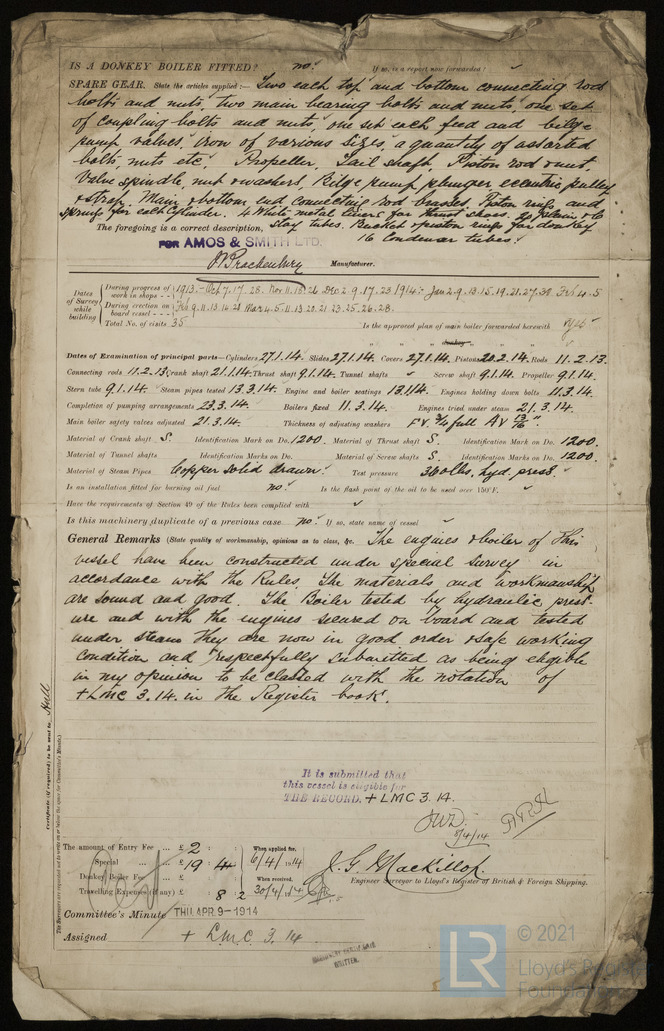 IS A DONKEY BOILER FITTED? no. If so, is a report now forwarded? "
SPARE GEAR. State the articles supplied:— Two each top and bottom connecting rod
bolts and nuts, two main bearing bolts and nuts, one set
of coupling bolts and nuts, one set each feed and bilge
pump valves, iron of various sizes, a quantity of assorted
bolts, nuts etc, Propeller, Tail shaft, Piston rod & nut,
Valve spindle, nut & washers, Bilge pump plunger eccentric pulley
& strap. Main & bottom end connecting rod brasses. Piston rings and
springs for each Cylinder. 4 White metal liners for thrust shoes.
stay tubes. Bucket & piston rings for donkey
The foregoing is a correct description,
16 Condenser tubes.
FOR AMOS & SMITH LTD.
Manufacturer.
Dates of Survey while building
During progress of work in shops -- 1913:- Oct 7. 17. 28. Nov 11. 18. 26 Dec 2. 9. 17. 23 1914:- Jan 2. 9. 13. 15. 19. 21. 27. 30. Feb 4. 5
During erection on board vessel --- Feb 9. 11. 13. 14. 20 Mar 4. 5. 11. 13. 20. 21. 23. 25. 26. 28.
Total No. of visits 35 Is the approved plan of main boiler forwarded herewith Yes
" " " donkey " " "
Dates of Examination of principal parts—Cylinders 27.1.14. Slides 27.1.14. Covers 27.1.14. Pistons 20.2.14. Rods 11.2.13.
Connecting rods 11.2.13 Crank shaft 21.1.14 Thrust shaft 9.1.14. Tunnel shafts " Screw shaft 9.1.14. Propeller 9.1.14.
Stern tube 9.1.14. Steam pipes tested 13.3.14. Engine and boiler seatings 13.1.14. Engines holding down bolts 11.3.14.
Completion of pumping arrangements 23.3.14. Boilers fixed 11.3.14. Engines tried under steam 21.3.14.
Main boiler safety valves adjusted 21.3.14. Thickness of adjusting washers FV. 3/4 full AV 13/16".
Material of Crank shaft S. Identification Mark on Do. 1200. Material of Thrust shaft S. Identification Mark on Do. 1200.
Material of Tunnel shafts Identification Marks on Do. Material of Screw shafts S. Identification Marks on Do. 1200.
Material of Steam Pipes Copper solid drawn. Test pressure 360 lbs. hyd. press.
Is an installation fitted for burning oil fuel no. Is the flash point of the oil to be used over 150°F. "
Have the requirements of Section 49 of the Rules been complied with "
Is this machinery duplicate of a previous case no. If so, state name of vessel "
General Remarks (State quality of workmanship, opinions as to class, &c. The engines & boiler of this
vessel have been constructed under special survey in
accordance with the Rules. The materials and workmanship
are sound and good. The Boiler tested by hydraulic press-
ure and with the engines secured on board and tested
under steam they are now in good order & safe working
condition and respectfully submitted as being eligible
in my opinion to be classed with the notation of
+LMC 3.14. in the Register book.
Certificate (if required) to be sent to Hull
The Surveyors are requested not to write on or below the space for Committee's Minute.
It is submitted that
this vessel is eligible for
THE RECORD. + LMC 3.14.
8/4/14
The amount of Entry Fee .. £ 2 : : When applied for,
Special ... £ 19 : 4 : 6/4/1914
Donkey Boiler Fee ... £ : : When received,
Travelling Expenses (if any) £ : 8 : 2 30/4/1914
J. G. Mackillop.
Engineer Surveyor to Lloyd's Register of British & Foreign Shipping.
Committee's Minute THU. APR. 9 - 1914
Assigned + L.M.C. 3.14
WRITTEN.
LR
© 2021
Lloyd's Register
Foundation